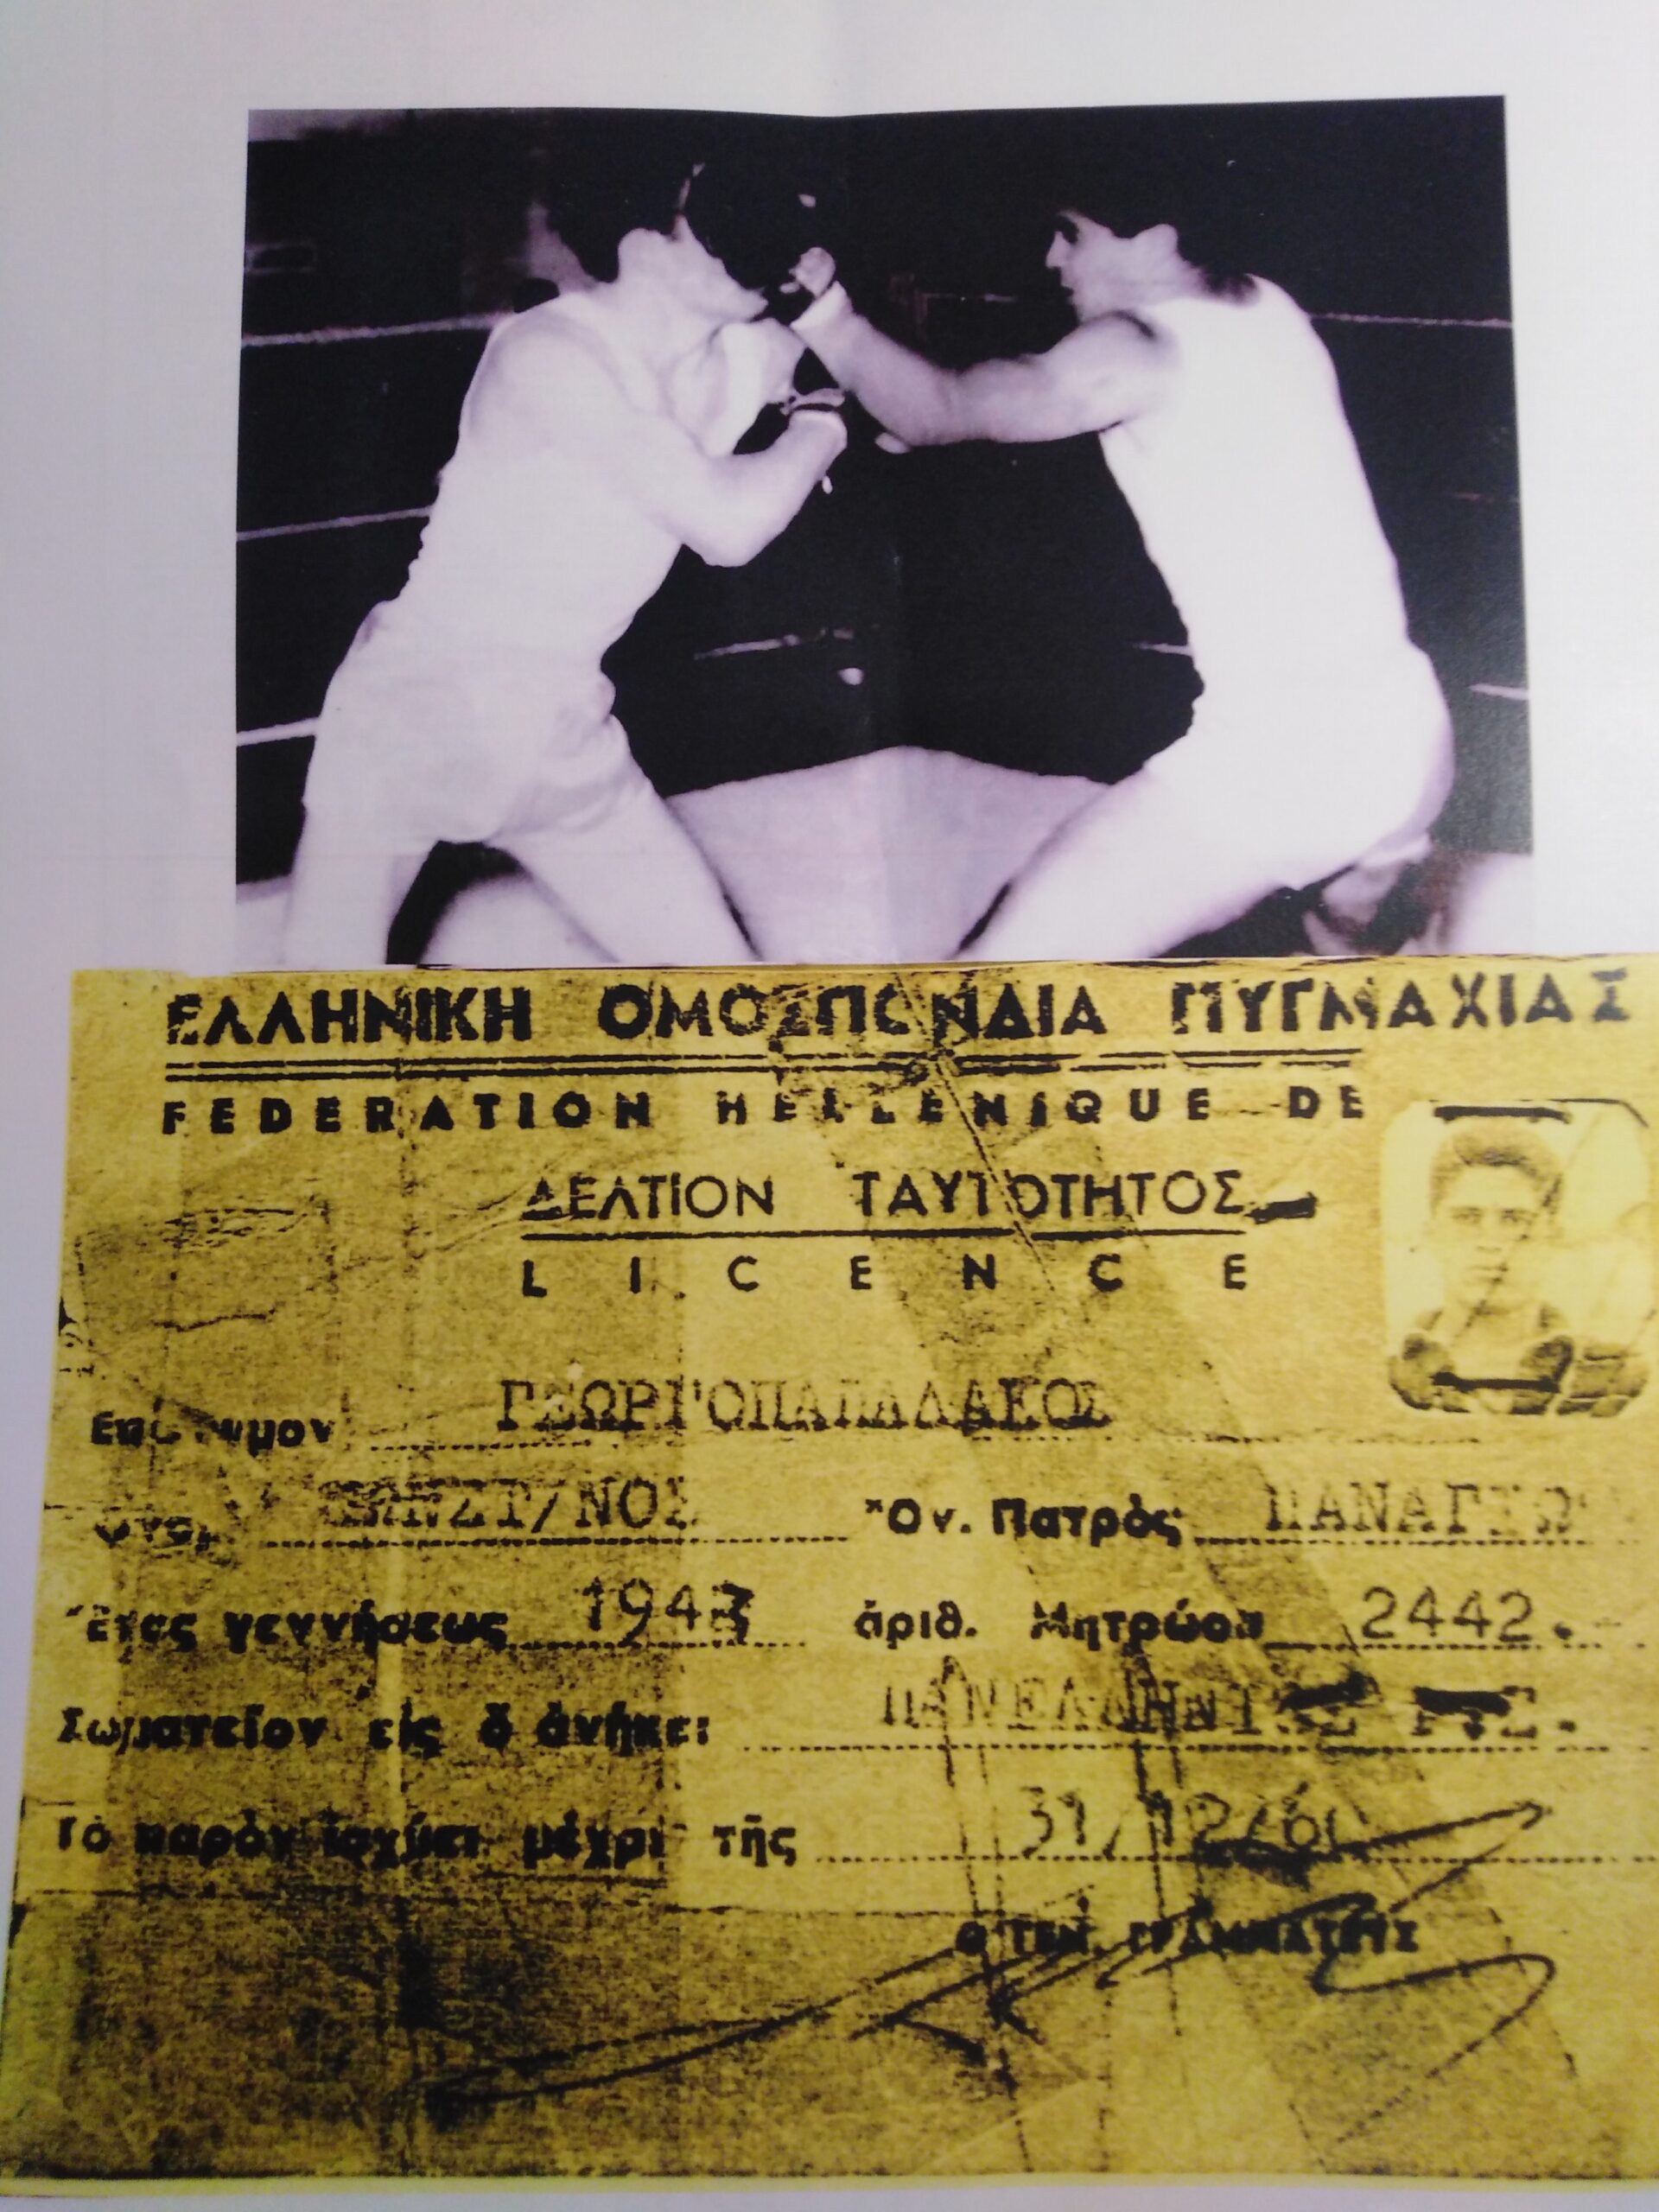 ΕΛΛΗΝΙΚΗ ΟΜΟΣΠΟΝΔΙΑ ΠΥΓΜΑΧΙΑΣ
FEDERATION HELLENIQUE DE
ΔΕΛΤΙΟΝ ΤΑΥΤΟΤΗΤΟΣ
LICENCE
Επώνυμον ΓΕΩΡΓΟΠΑΠΑΔΑΚΟΣ
Ὄν. Πατρὸς ΠΑΝΑΓΙΩ
Ἔτος γεννήσεως 194 ἀριθ. Μητρώου 2442.
Σωματεῖον εἰς ὃ ἀνήκει ΠΑΝΕΛΛΗΝΙΟΣ Γ.Σ.
Τὸ παρὸν ἰσχύει μέχρι τῆς 31/12/6
Ο ΓΕΝ. ΓΡΑΜΜΑΤΕΥΣ